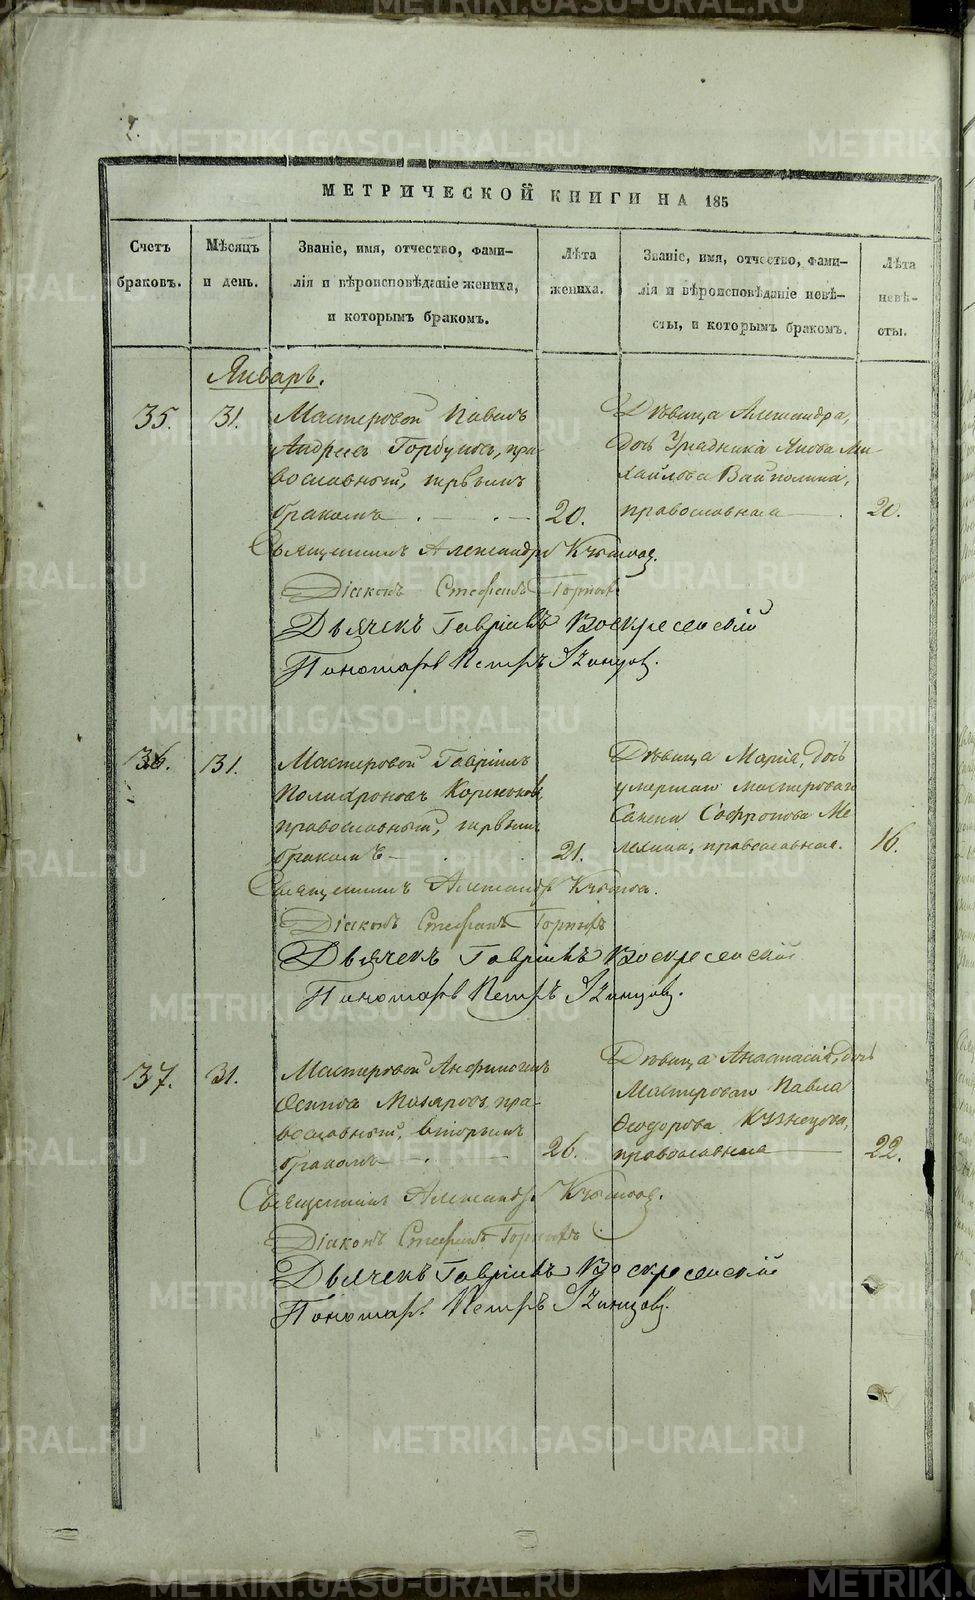 МЕТРИЧЕСКОЙ КНИГИ НА 185
Счетъ браковъ.
Мѣсяцъ и день.
Званіе, имя, отчество, фами-
лія и вѣроисповѣданіе жениха,
и которымъ бракомъ.
Лѣта жениха.
Званіе, имя, отчество, фами-
лія и вѣроисповѣданіе невѣ-
сты, и которымъ бракомъ.
Лѣта невѣ-
сты.
Январь.
35. 31. Мастеровой Павелъ
Андреевъ Горбуновъ, пра-
вославный, первымъ
бракомъ 20.
Дѣвица Александра,
дочь Урядника Якова Ми-
хайлова
православная 20.
Священникъ Александръ
Діаконъ Стефанъ
Дьячекъ Гавріилъ Воскресенскій
Пономарь Петръ
36. 31. Мастеровой Гавріилъ
Полихроновъ
православный, первымъ
бракомъ 21.
Дѣвица Марія, дочь
умершаго мастероваго
Софронова Ме-
лехина, православная. 16.
Священникъ Александръ
Діаконъ Стефанъ
Дьячекъ Гавріилъ Воскресенскій
Пономарь Петръ
37. 31. Мастеровой Анфиногенъ
Осиповъ Макаровъ, пра-
вославный, вторымъ
бракомъ 26.
Дѣвица Анастасія, дочь
Мастероваго Павла
Ѳеодорова Кузнецова,
православная 22.
Священникъ Александръ
Діаконъ Стефанъ
Дьячекъ Гавріилъ Воскресенскій
Пономарь Петръ
METRIKI.GASO-URAL.RU